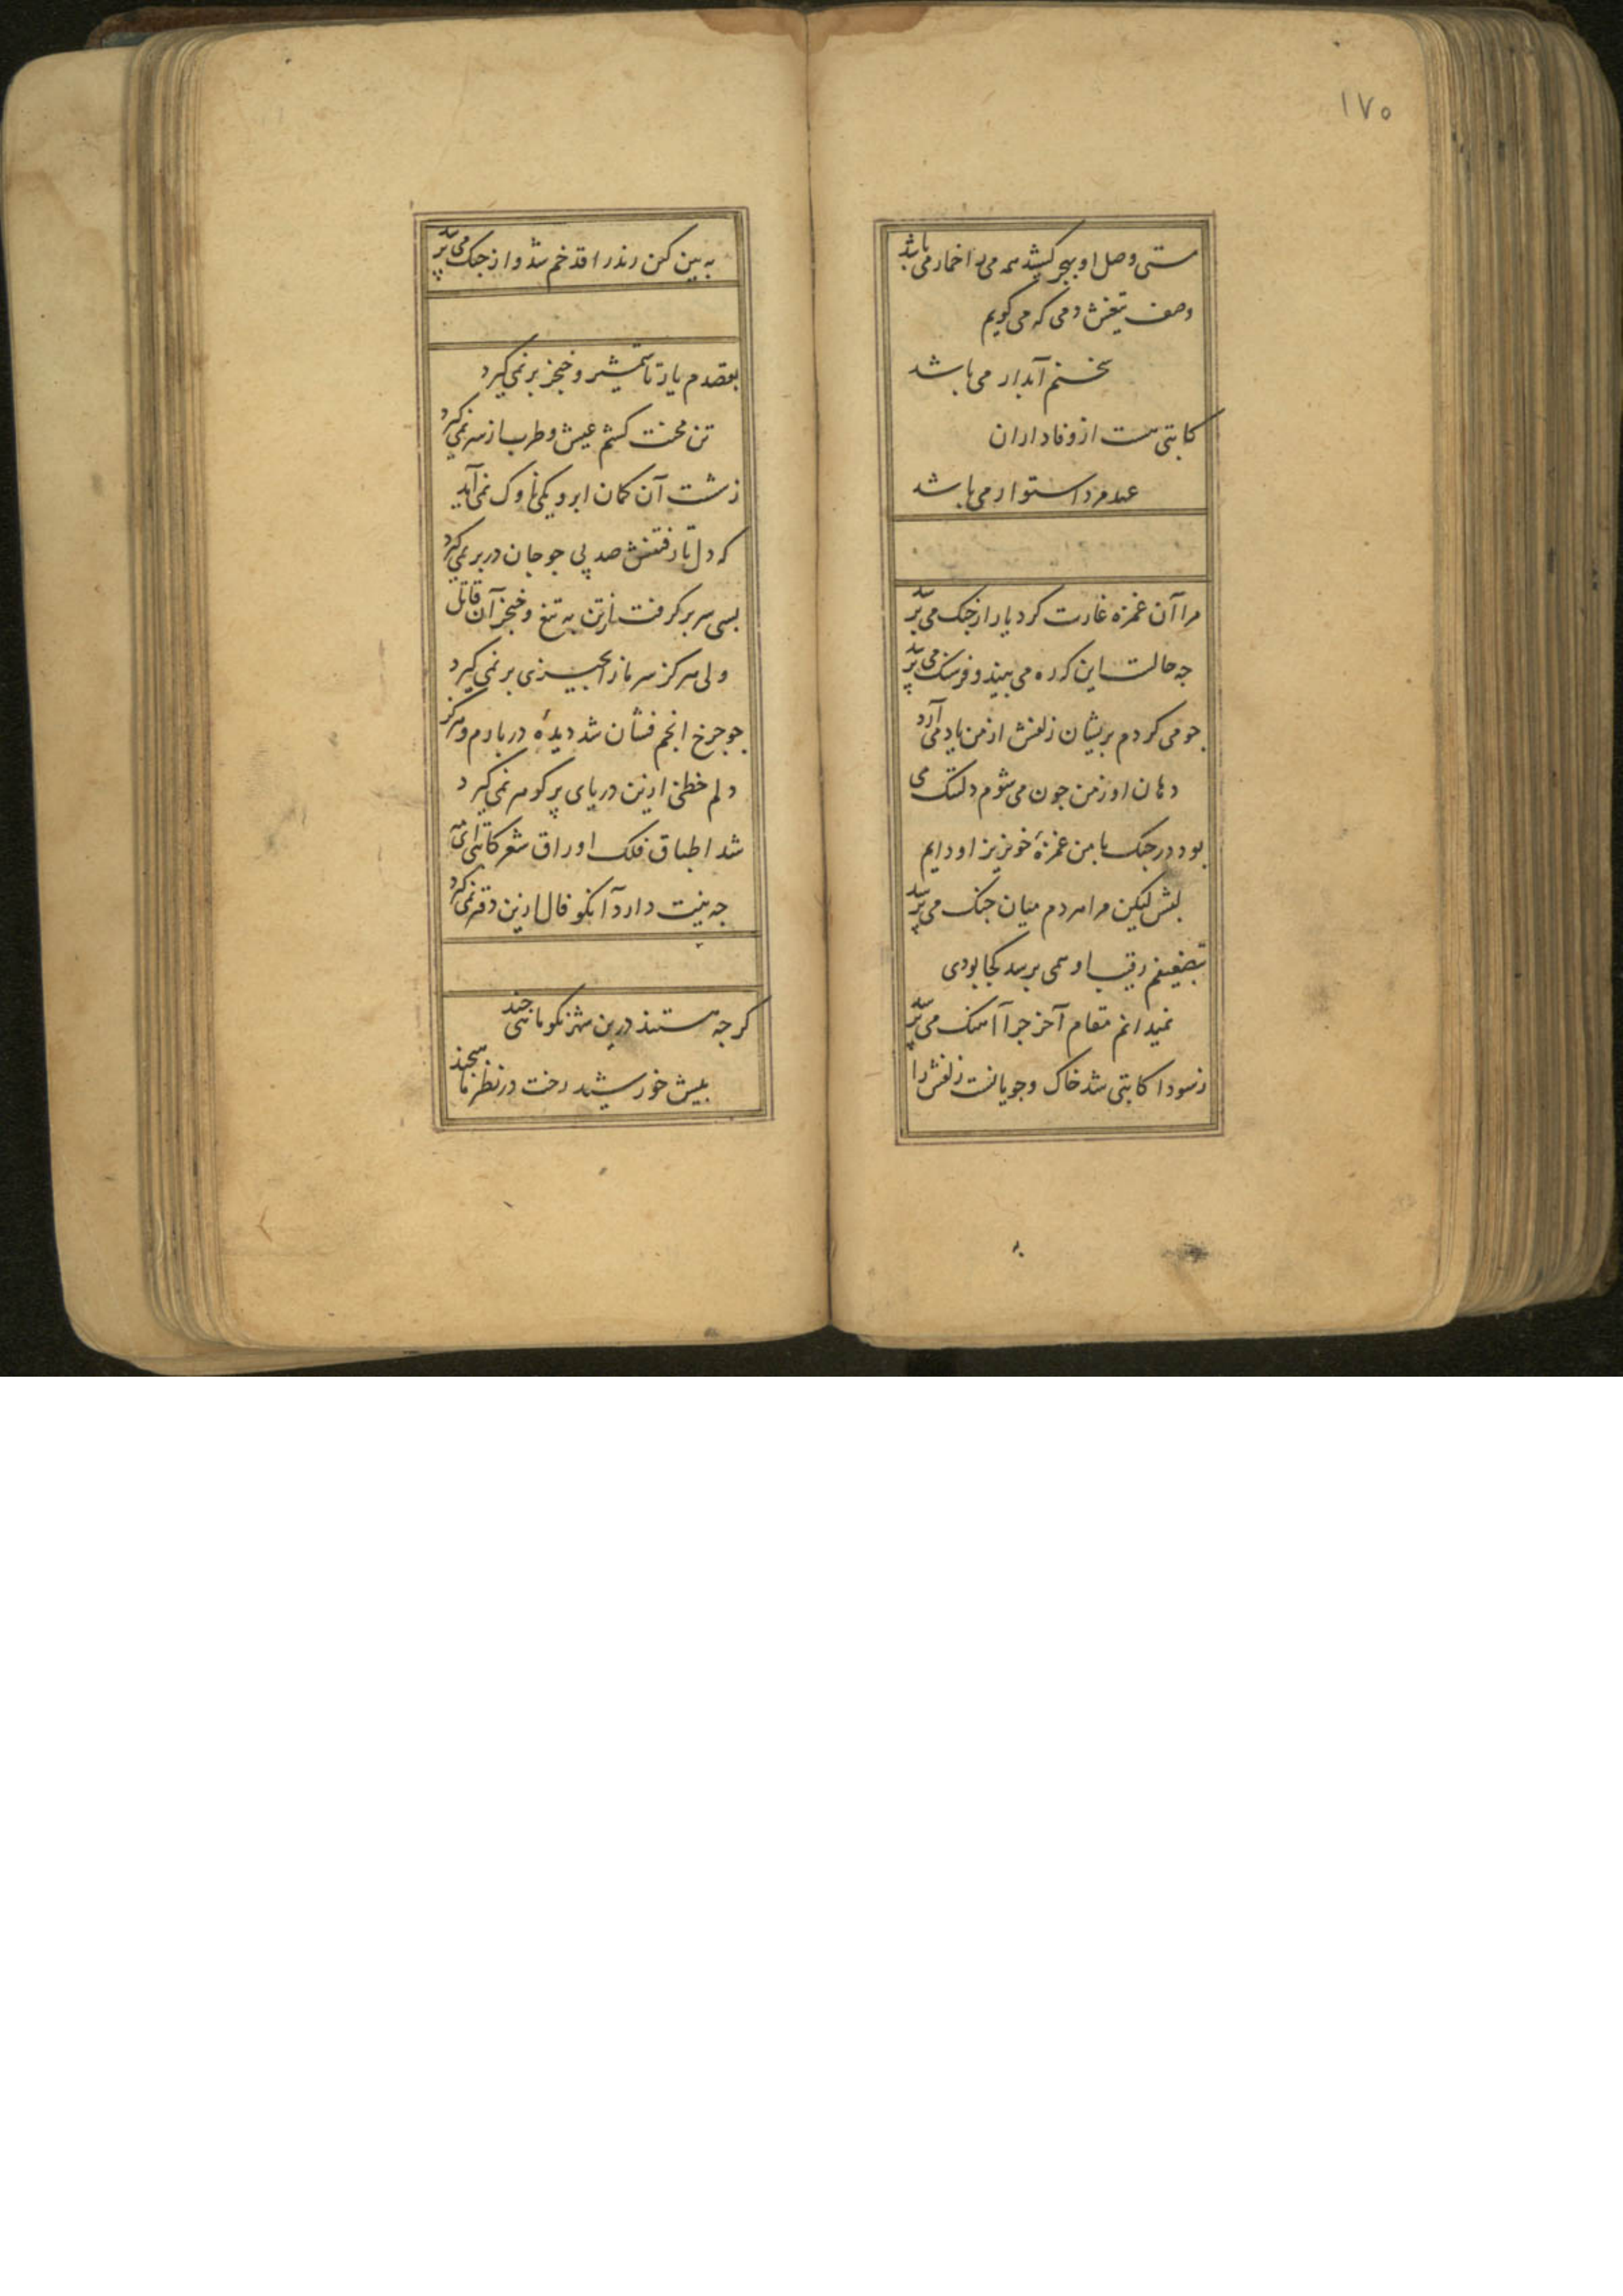 ۱۷۵
مستی وصل او بهجر کشید همه می را خمار می باشد
وصف تیغش دمی که می گویم
سخنم آبدار می باشد
کاتبی هست از وفاداران
عهد مرد استوار می باشد
مرا آن غمزه غارت کرد یار از جنک می پرسد
جه حالست این کره می بیند و فرسنک می پرسد
جو می کردم بریشان زلفش از من یاد می آرد
دهان او زمن جون می شوم دلتنک می
بود در جنک با من غمزۀ خونریز او دایم
لبش لیکن مرا هر دم میان جنک می پرسد
بتضعیفم رقیب او همی برسد کجا بودی
نمیدانم مقام آخر جرا آهنک می پرسد
ز سودا کاتبی شد خاک و جویانست زلفش را
به
به بین کین رند را قد خم شد و از جنک می پرسد
بقصدم یار تا شمشیر و خنجر بر نمی کیرد
تن محنت کشم عیش و طرب از سر نمی کیرد
ز شست آن کمان ابرو یکی ناوک نمی آید
که دل تا رفتنش صد پی جو جان در بر نمی کیرد
بسی سر بر کرفت از تن به تیغ و خنجر آن قاتل
ولی هرکز سر ما را بجیزی بر نمی کیرد
جو جرخ انجم فشان شد دیدۀ دربارم و هرکز
دلم حظی ازین دریای پر کوهر نمی کیرد
شد اطباق فلک اوراق شعر کاتبی ای
جه نیت دارد آنکو فال ازین دفتر نمی کیرد
کرجه هستند درین شهر نکو ماهی جند
بیش خورشید رخت در نظر ما هیجند